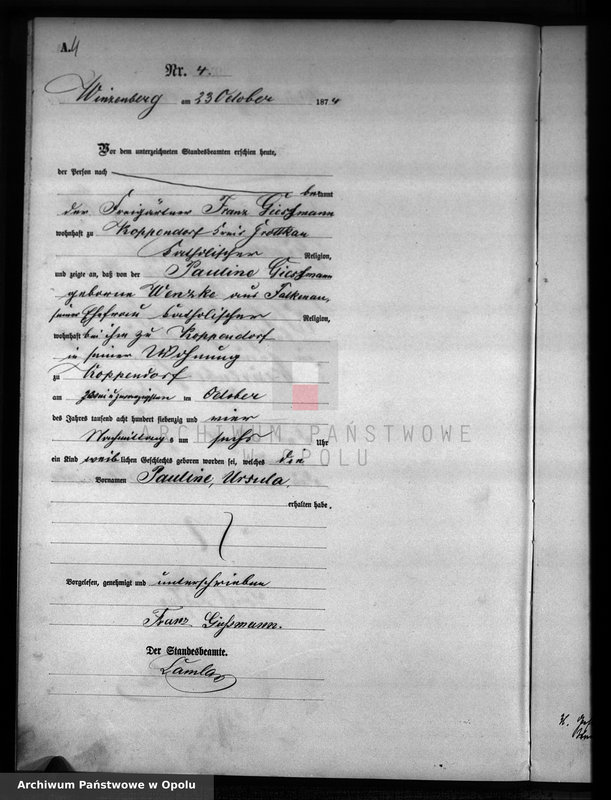 A. 4
Nr. 4.
Winzenberg am 23 October 1874
Vor dem unterzeichneten Standesbeamten erschien heute,
der Person nach
bekannt
der Freigärtner Franz Giessmann
wohnhaft zu Koppendorf Kreis Grottkau
katholischer Religion,
und zeigte an, daß von der Pauline Giessmann
geborne Wenzke aus Falkenau,
seiner Ehefrau katholischer Religion,
wohnhaft bei ihm zu Koppendorf
in seiner Wohnung
zu Koppendorf
am zwei u zwanzigsten im October
des Jahres tausend acht hundert siebenzig und vier
Nachmittags um sechs Uhr
ein Kind weiblichen Geschlechts geboren worden sei, welches die
Vornamen Pauline, Ursula
erhalten habe.
Vorgelesen, genehmigt und unterschrieben
Franz Gießmann.
Der Standesbeamte.
Lamla
ARCHIWUM PAŃSTWOWE
W OPOLU
Archiwum Państwowe w Opolu